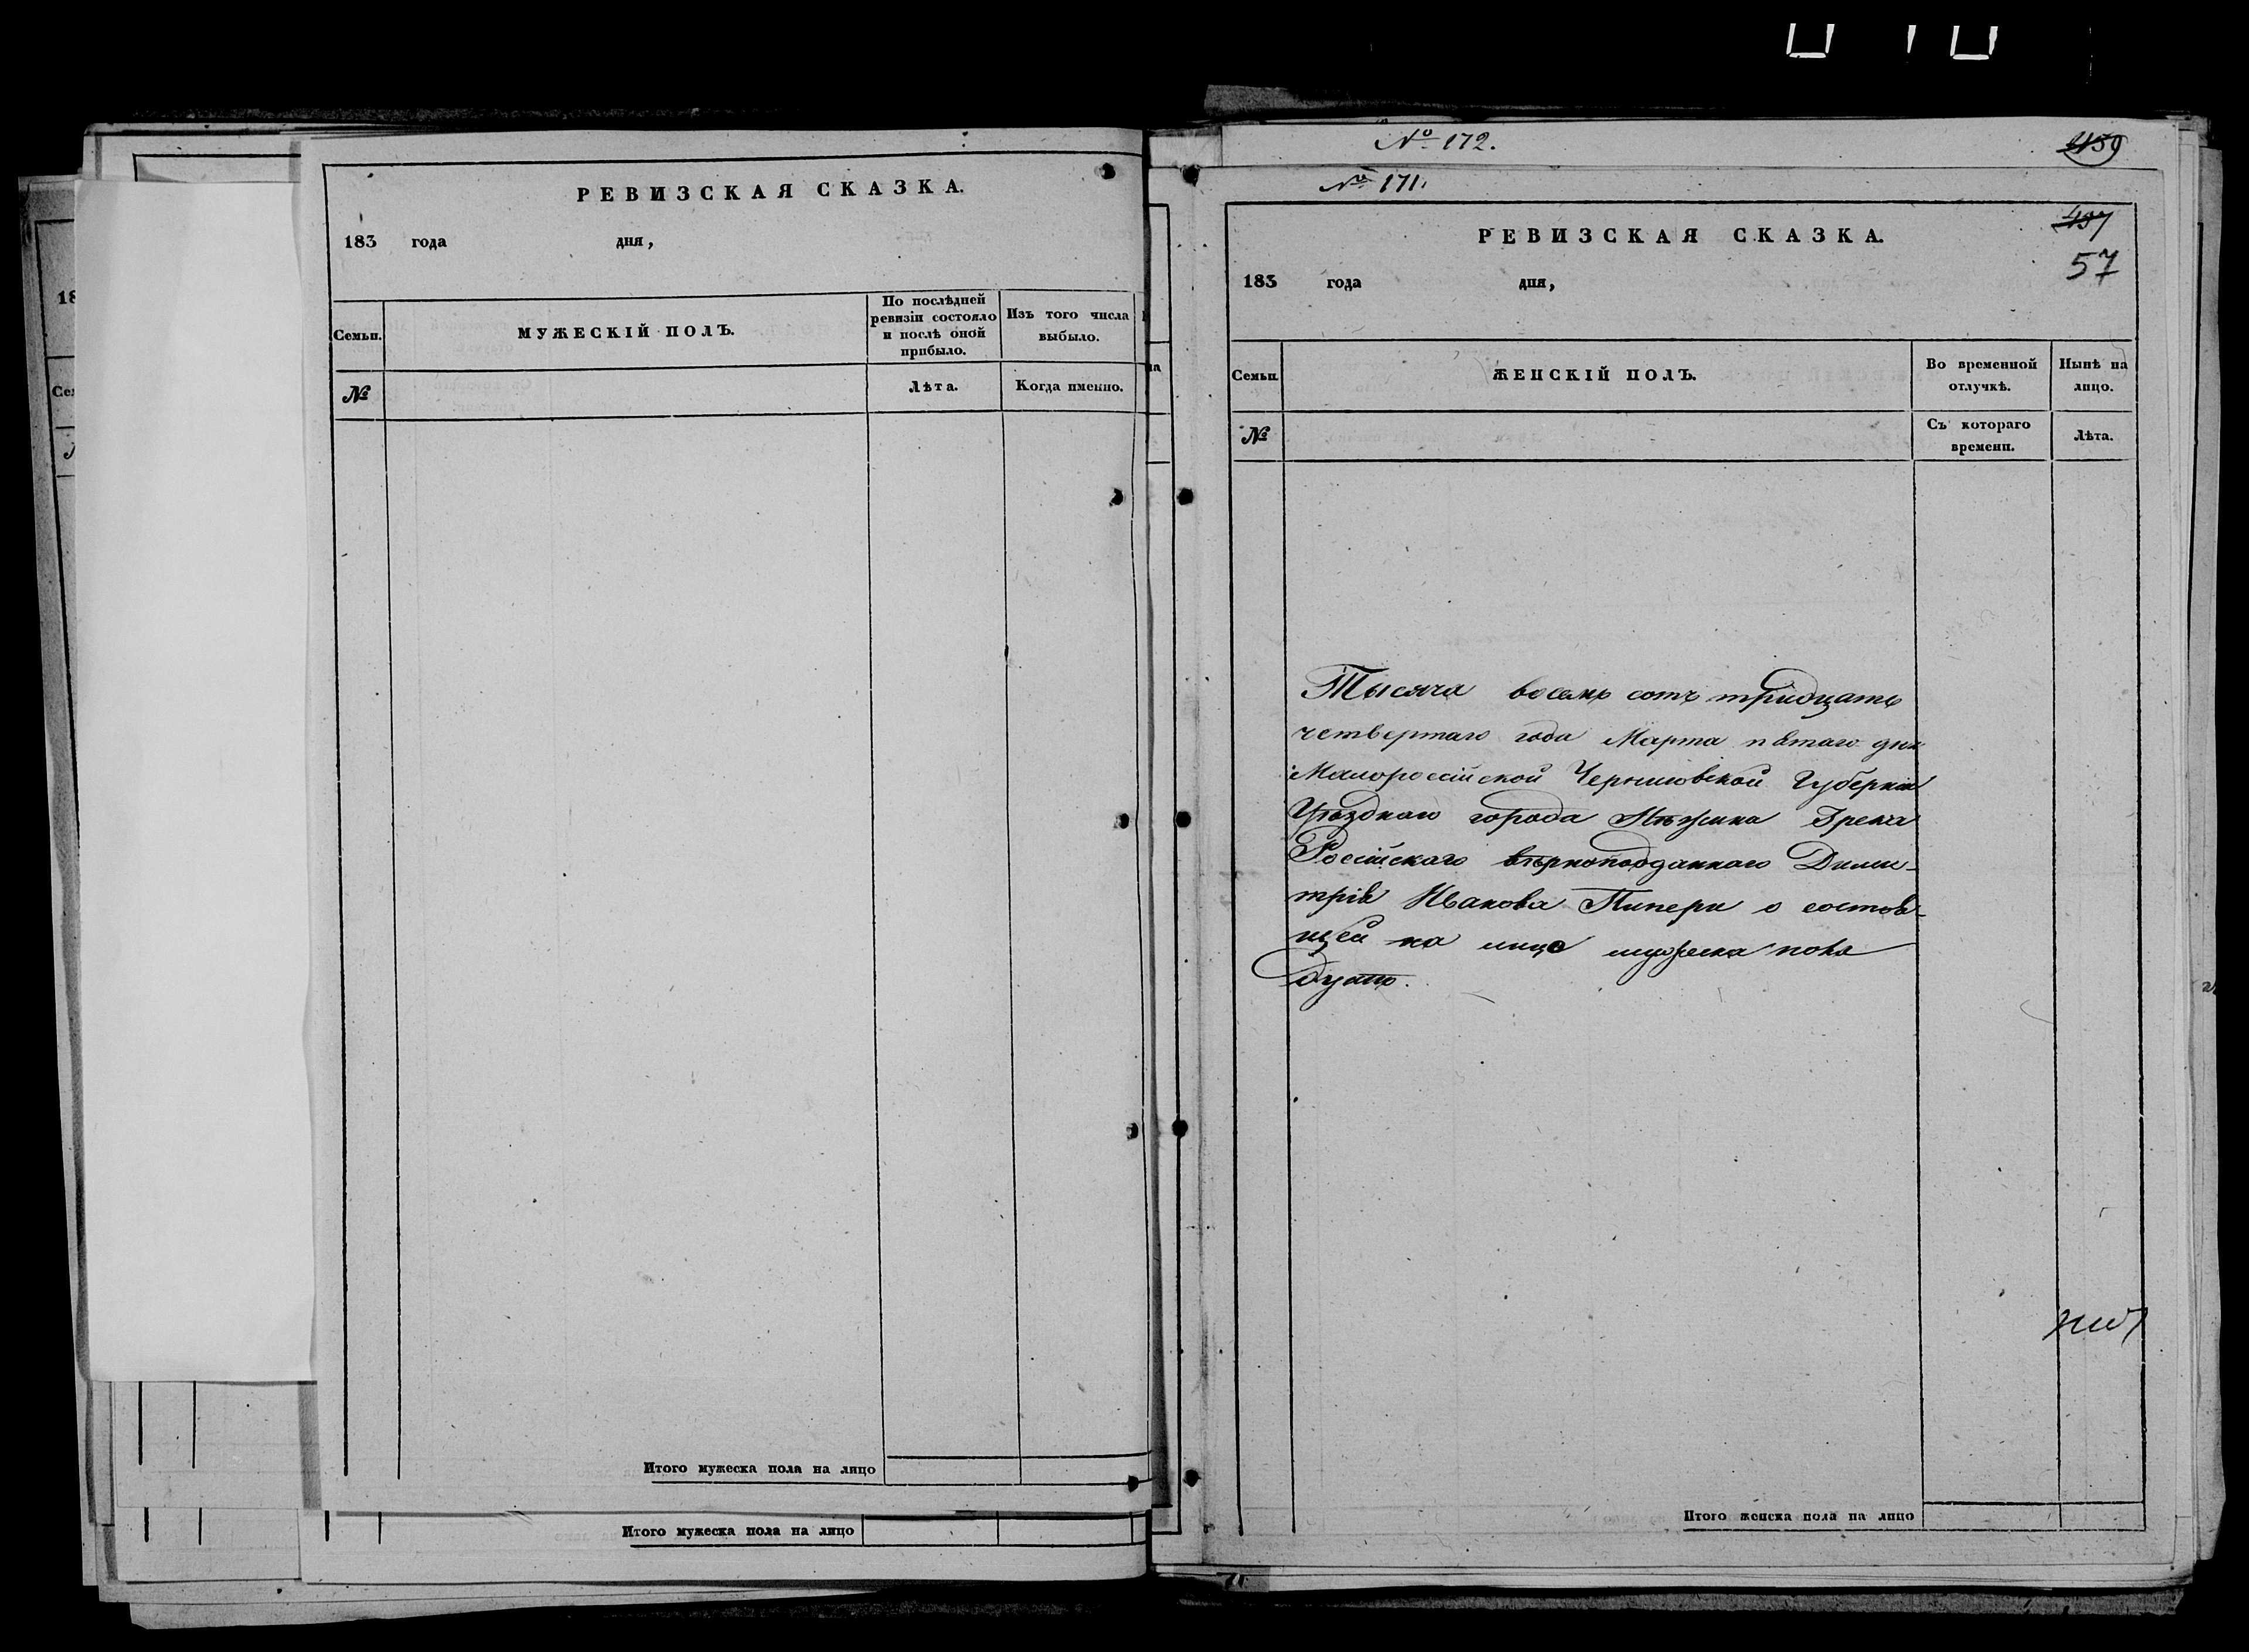 РЕВИЗСКАЯ СКАЗКА.
183 года дня,
Семьи.
МУЖЕСКІЙ ПОЛЪ.
По послѣдней
ревизіи состояло
и послѣ оной
прибыло.
Изъ того числа
выбыло.
№
Лѣта.
Когда именно.
Итого мужеска пола на лицо
Итого мужеска пола на лицо
№ 172.
459
№ 171.
457
57
РЕВИЗСКАЯ СКАЗКА.
183 года дня,
Семьи.
ЖЕНСКІЙ ПОЛЪ.
Во временной
отлучкѣ.
Нынѣ на
лицо.
№
Съ котораго
времени.
Лѣта.
Тысяча восемь сотъ тридцать
четвертаго года Марта пятаго дня
Малороссійской Черниговской Губерніи
Уѣзднаго города Нѣжина Грека
Россійскаго вѣрноподданнаго Дими-
трія Иванова Пипери о состоя-
щей на лицо мужеска пола
душѣ.
Итого женска пола на лицо